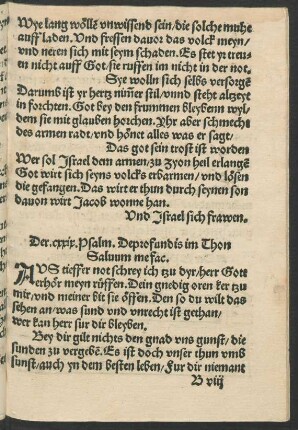 Wye lang wöllē vnwissend sein/die solche muhe
auff laden. Vnd fressen dauor das volck meyn/
vnd neren sich mit seym schaden. Es stet yr treu-
en nicht auff Got/sie ruffen im nicht in der not.
Sye wolln sich selbs versorgē
Darumb ist yr hertz nim̄er stil/vnnd steht altzeyt
in forchten. Got bey den frummen bleybenn wyl/
dem sie mit glauben horchen. Yhr aber schmecht
des armen radt/vnd hönet alles was er sagt/
Das got sein trost ist worden
Wer sol Israel dem armen/zu Zyon heil erlangē
Got wirt sich seyns volcks erbarmen/vnd lösen
die gefangen. Das wirt er thun durch seynen son
dauon wirt Jacob wonne han.
Vnd Israel sich frawen.
Der.cxxix.Psalm. Deprofundis im Thon
Saluum me fac.
AVS tieffer not schrey ich tzu dyr/herr Gott
erhör meyn rüffen. Dein gnedig oren ker tzu
mir/vnd meiner bit sie öffen. Den so du wilt das
sehen an/was sund vnd vnrecht ist gethan/
wer kan herr fur dir bleyben.
Bey dir gilt nichts den gnad vns gunst/die
sunden zu vergebē. Es ist doch vnser thun vmb
sunst/auch yn dem besten leben/Fur dir niemant
B iij